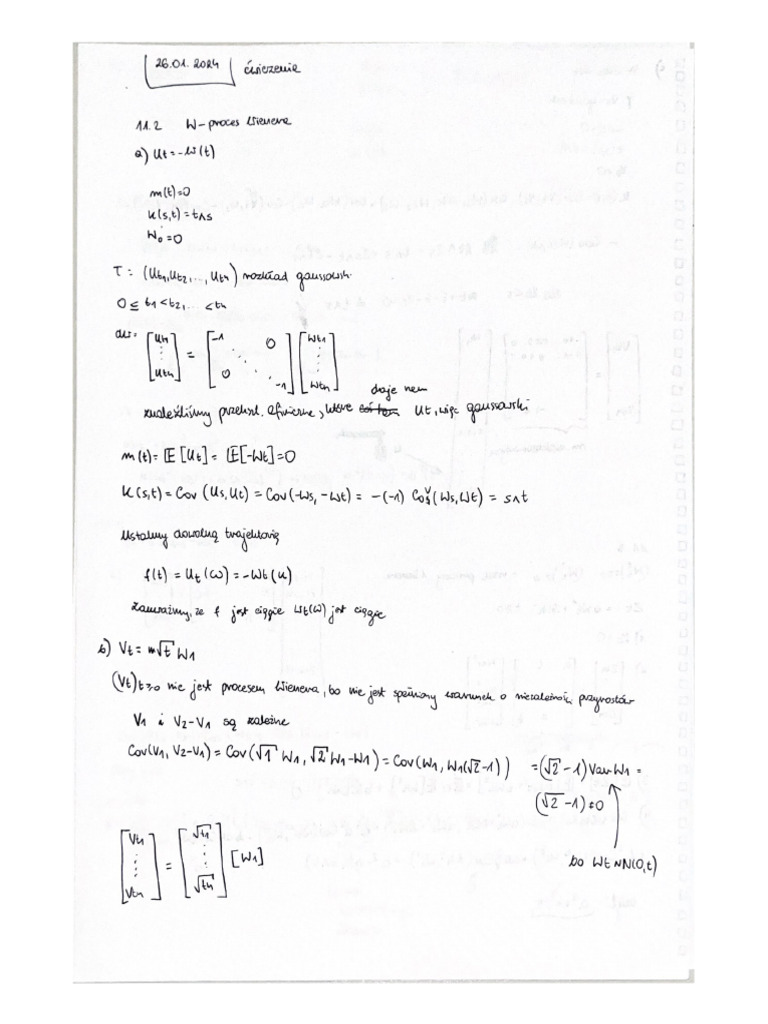 26.01.2024 ćwiczenia
11.2 W-proces Wienera
a) Ut = -W(t)
m(t)=0
K(s,t) = t∧s
W₀ = 0
T = (Ut1, Ut2, ..., Utn) rozkład gaussowski
0 ≤ t1 < t2, ... < tn
[Ut1 ⋮ Utn] = [-1 0 ⋱ 0 -1] [Wt1 ⋮ Wtn]
znaleźliśmy przekszt. afiniczne, które daje nam Ut, więc gaussowski
m(t) = E[Ut] = E[-Wt] = 0
K(s,t) = Cov(Us, Ut) = Cov(-Ws, -Wt) = -(-1) Cov(Ws, Wt) = s∧t
Ustalmy dowolną trajektorię
f(t) = Ut(ω) = -Wt(ω)
Zauważmy, że f jest ciągłe Wt(ω) jest ciągłe
b) Vt = √t W1
(Vt)t≥0 nie jest procesem Wienera, bo nie jest spełniony warunek o niezależności przyrostów
V1 i V2-V1 są zależne
Cov(V1, V2-V1) = Cov(√1 W1, √2 W1-W1) = Cov(W1, W1(√2-1)) = (√2-1) Var W1 =
(√2-1) ≠ 0
[Vt1 ⋮ Vtn] = [√t1 ⋮ √tn] [W1]
bo Wt ~ N(0,t)